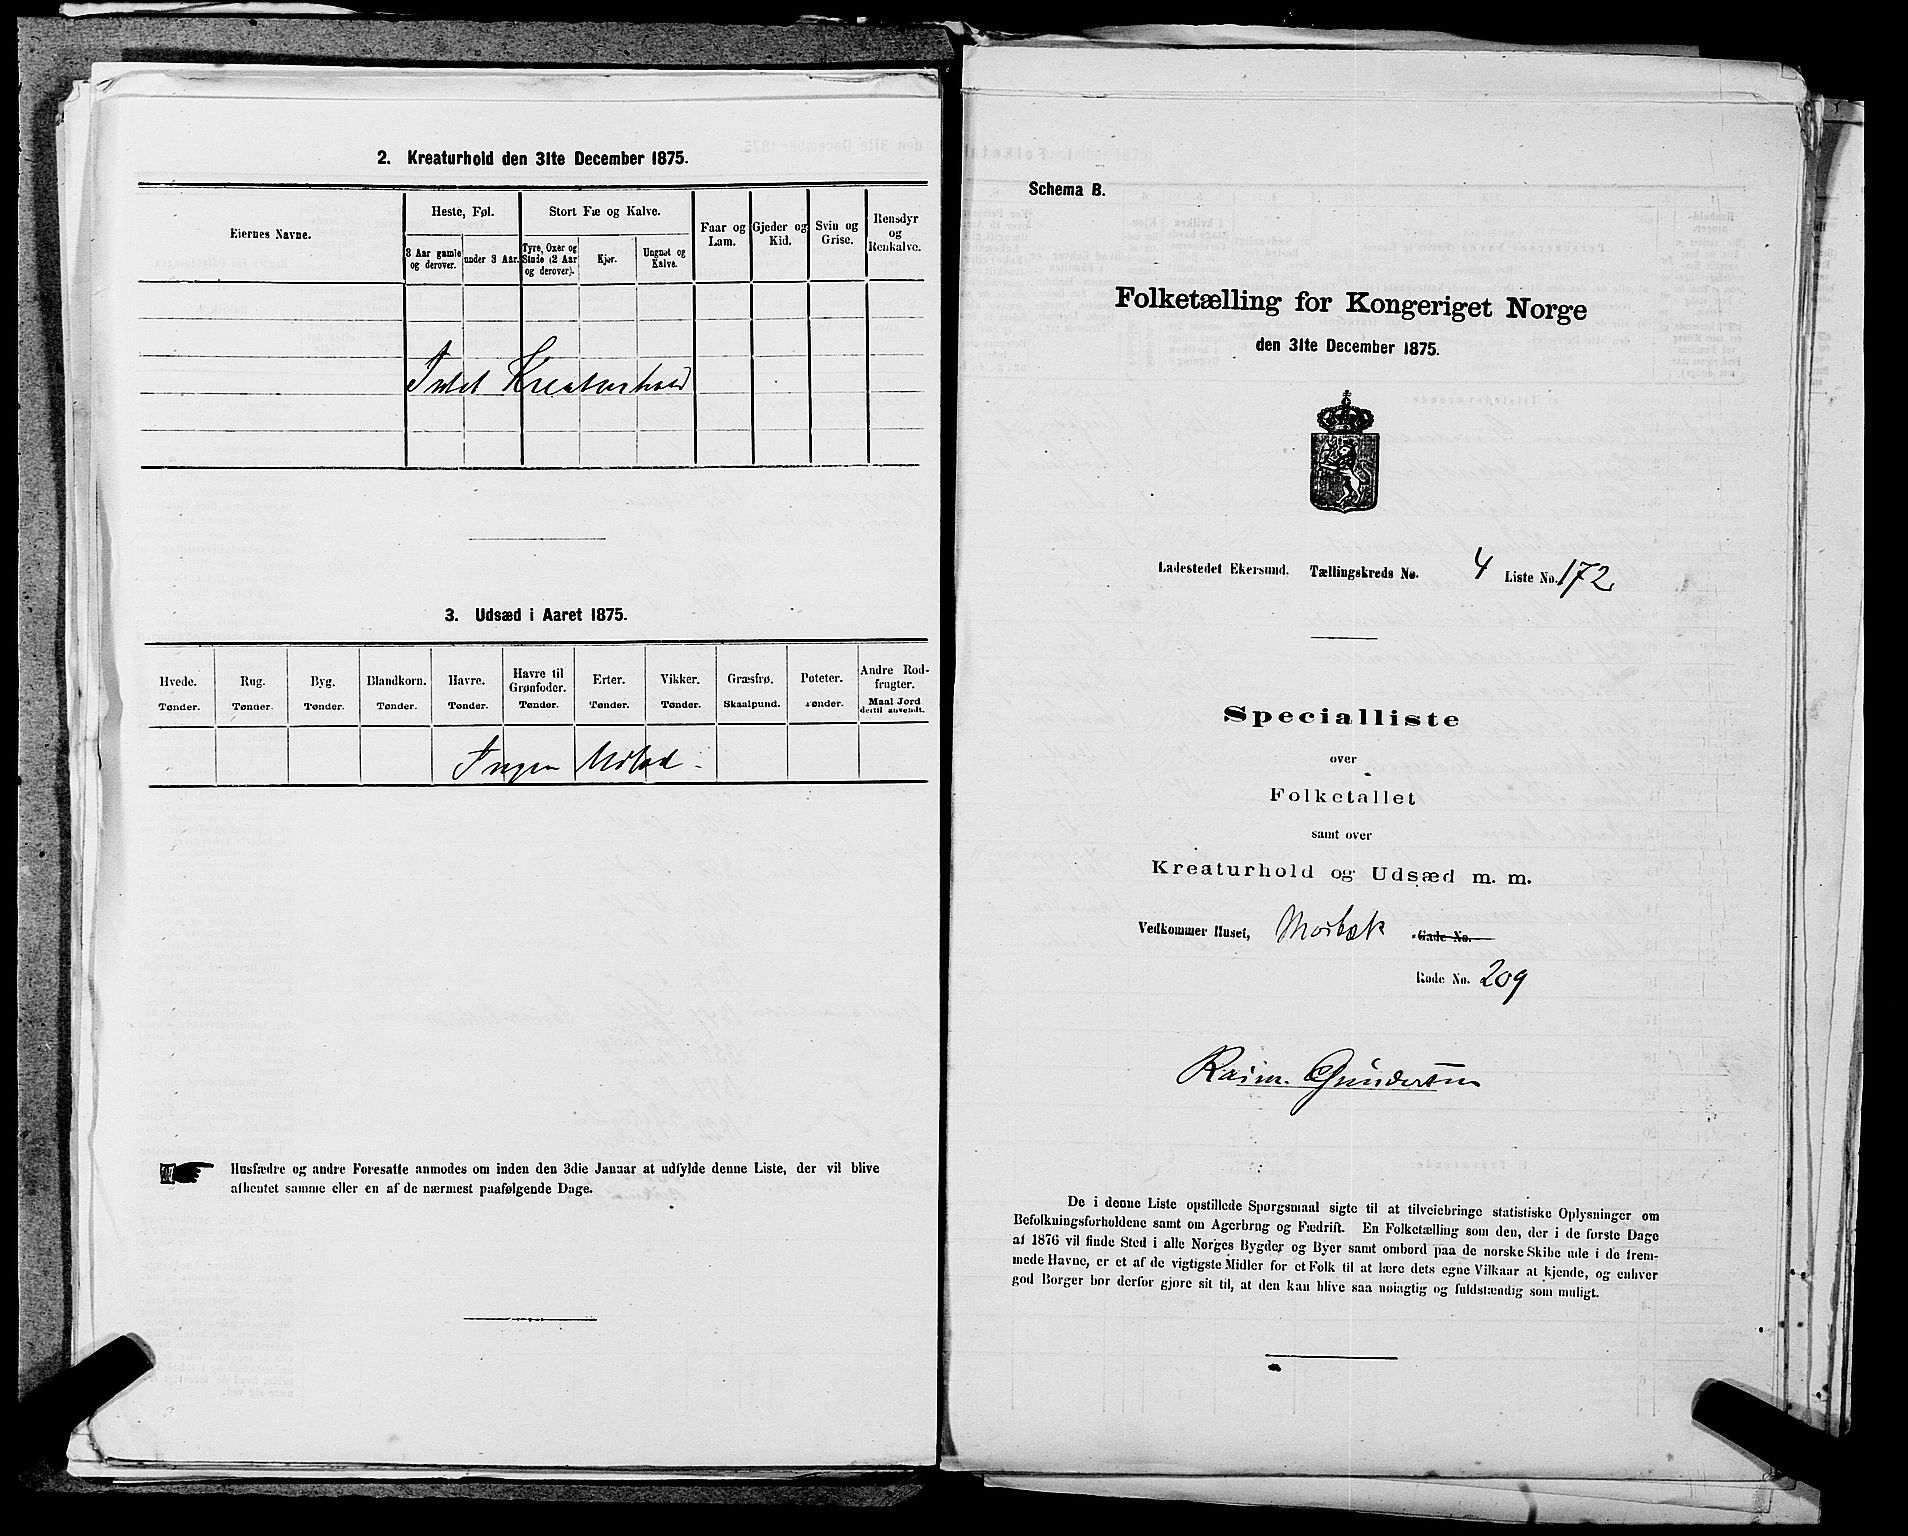 2. Kreaturhold den 31te December 1875.
Eiernes Navne.
Heste, Føl.
Stort Fæ og Kalve.
Faar og Lam.
Gjeder og Kid.
Svin og Grise.
Rensdyr og Renkalve.
3 Aar gamle og derover.
under 3 Aar.
Tyre, Oxer og Stude (2 Aar og derover).
Kjør.
Ungnøt og Kalve.
Intet Kreaturhold
3. Udsæd i Aaret 1875.
Hvede. Rug. Byg. Blandkorn. Havre. Havre til Grønfoder. Erter. Vikker. Græsfrø. Poteter. Andre Rodfrugter.
Tønder. Tønder. Tønder. Tønder. Tønder. Tønder. Tønder. Tønder. Skaalpund. Tønder. Maal Jord dertil anvendt.
Ingen Udsæd
Husfædre og andre Foresatte anmodes om inden den 3die Januar at udfylde denne Liste, der vil blive
afhentet samme eller en af de nærmest paafølgende Dage.
Schema B.
Folketælling for Kongeriget Norge
den 31te December 1875.
Ladestedet Ekersund. Tællingskreds No. 4 Liste No. 172.
Specialliste
over
Folketallet
samt over
Kreaturhold og Udsæd m. m.
Vedkommer Huset, Mosbæk Gade No.
Rode No. 209
Gundersen
De i denne Liste opstillede Spørgsmaal sigte til at tilveiebringe statistiske Oplysninger om
Befolkningsforholdene samt om Agerbrug og Fædrift. En Folketælling som den, der i de første Dage
af 1876 vil finde Sted i alle Norges Bygder og Byer samt ombord paa de norske Skibe ude i de frem-
mede Havne, er et af de vigtigste Midler for et Folk til at lære dets egne Vilkaar at kjende, og enhver
god Borger bør derfor gjøre sit til, at den kan blive saa nøiagtig og fuldstændig som muligt.